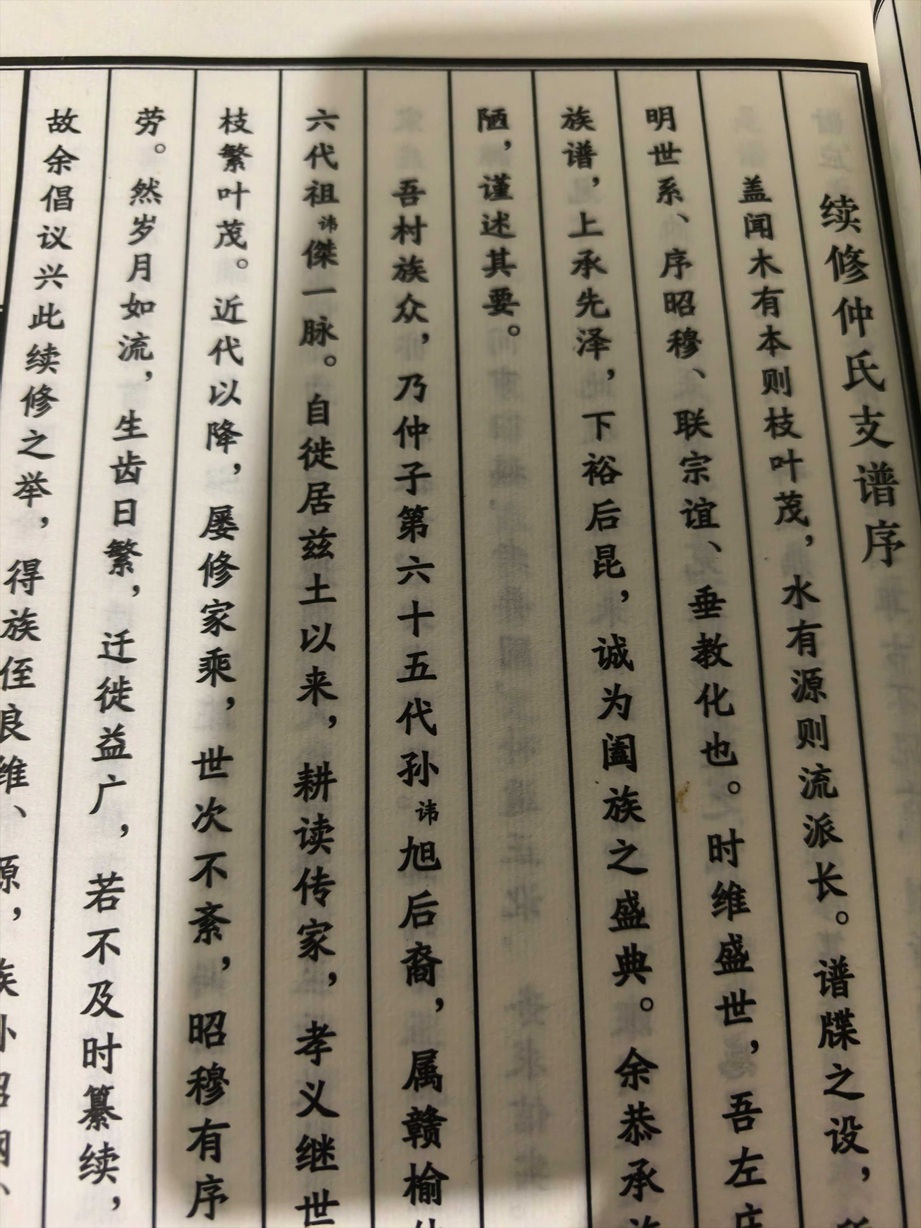 续修仲氏支谱序
盖闻木有本则枝叶茂，水有源则流派长。谱牒之设，
明世系、序昭穆、联宗谊、垂教化也。时维盛世，吾左
族谱，上承先泽，下裕后昆，诚为阖族之盛典。余恭承
陋，谨述其要。
吾村族众，乃仲子第六十五代孙讳旭后裔，属赣榆
六代祖讳傑一脉。自徙居兹土以来，耕读传家，孝义继世
枝繁叶茂。近代以降，屡修家乘，世次不紊，昭穆有序
劳。然岁月如流，生齿日繁，迁徙益广，若不及时纂续，
故余倡议兴此续修之举，得族侄良维、源，族孙昭